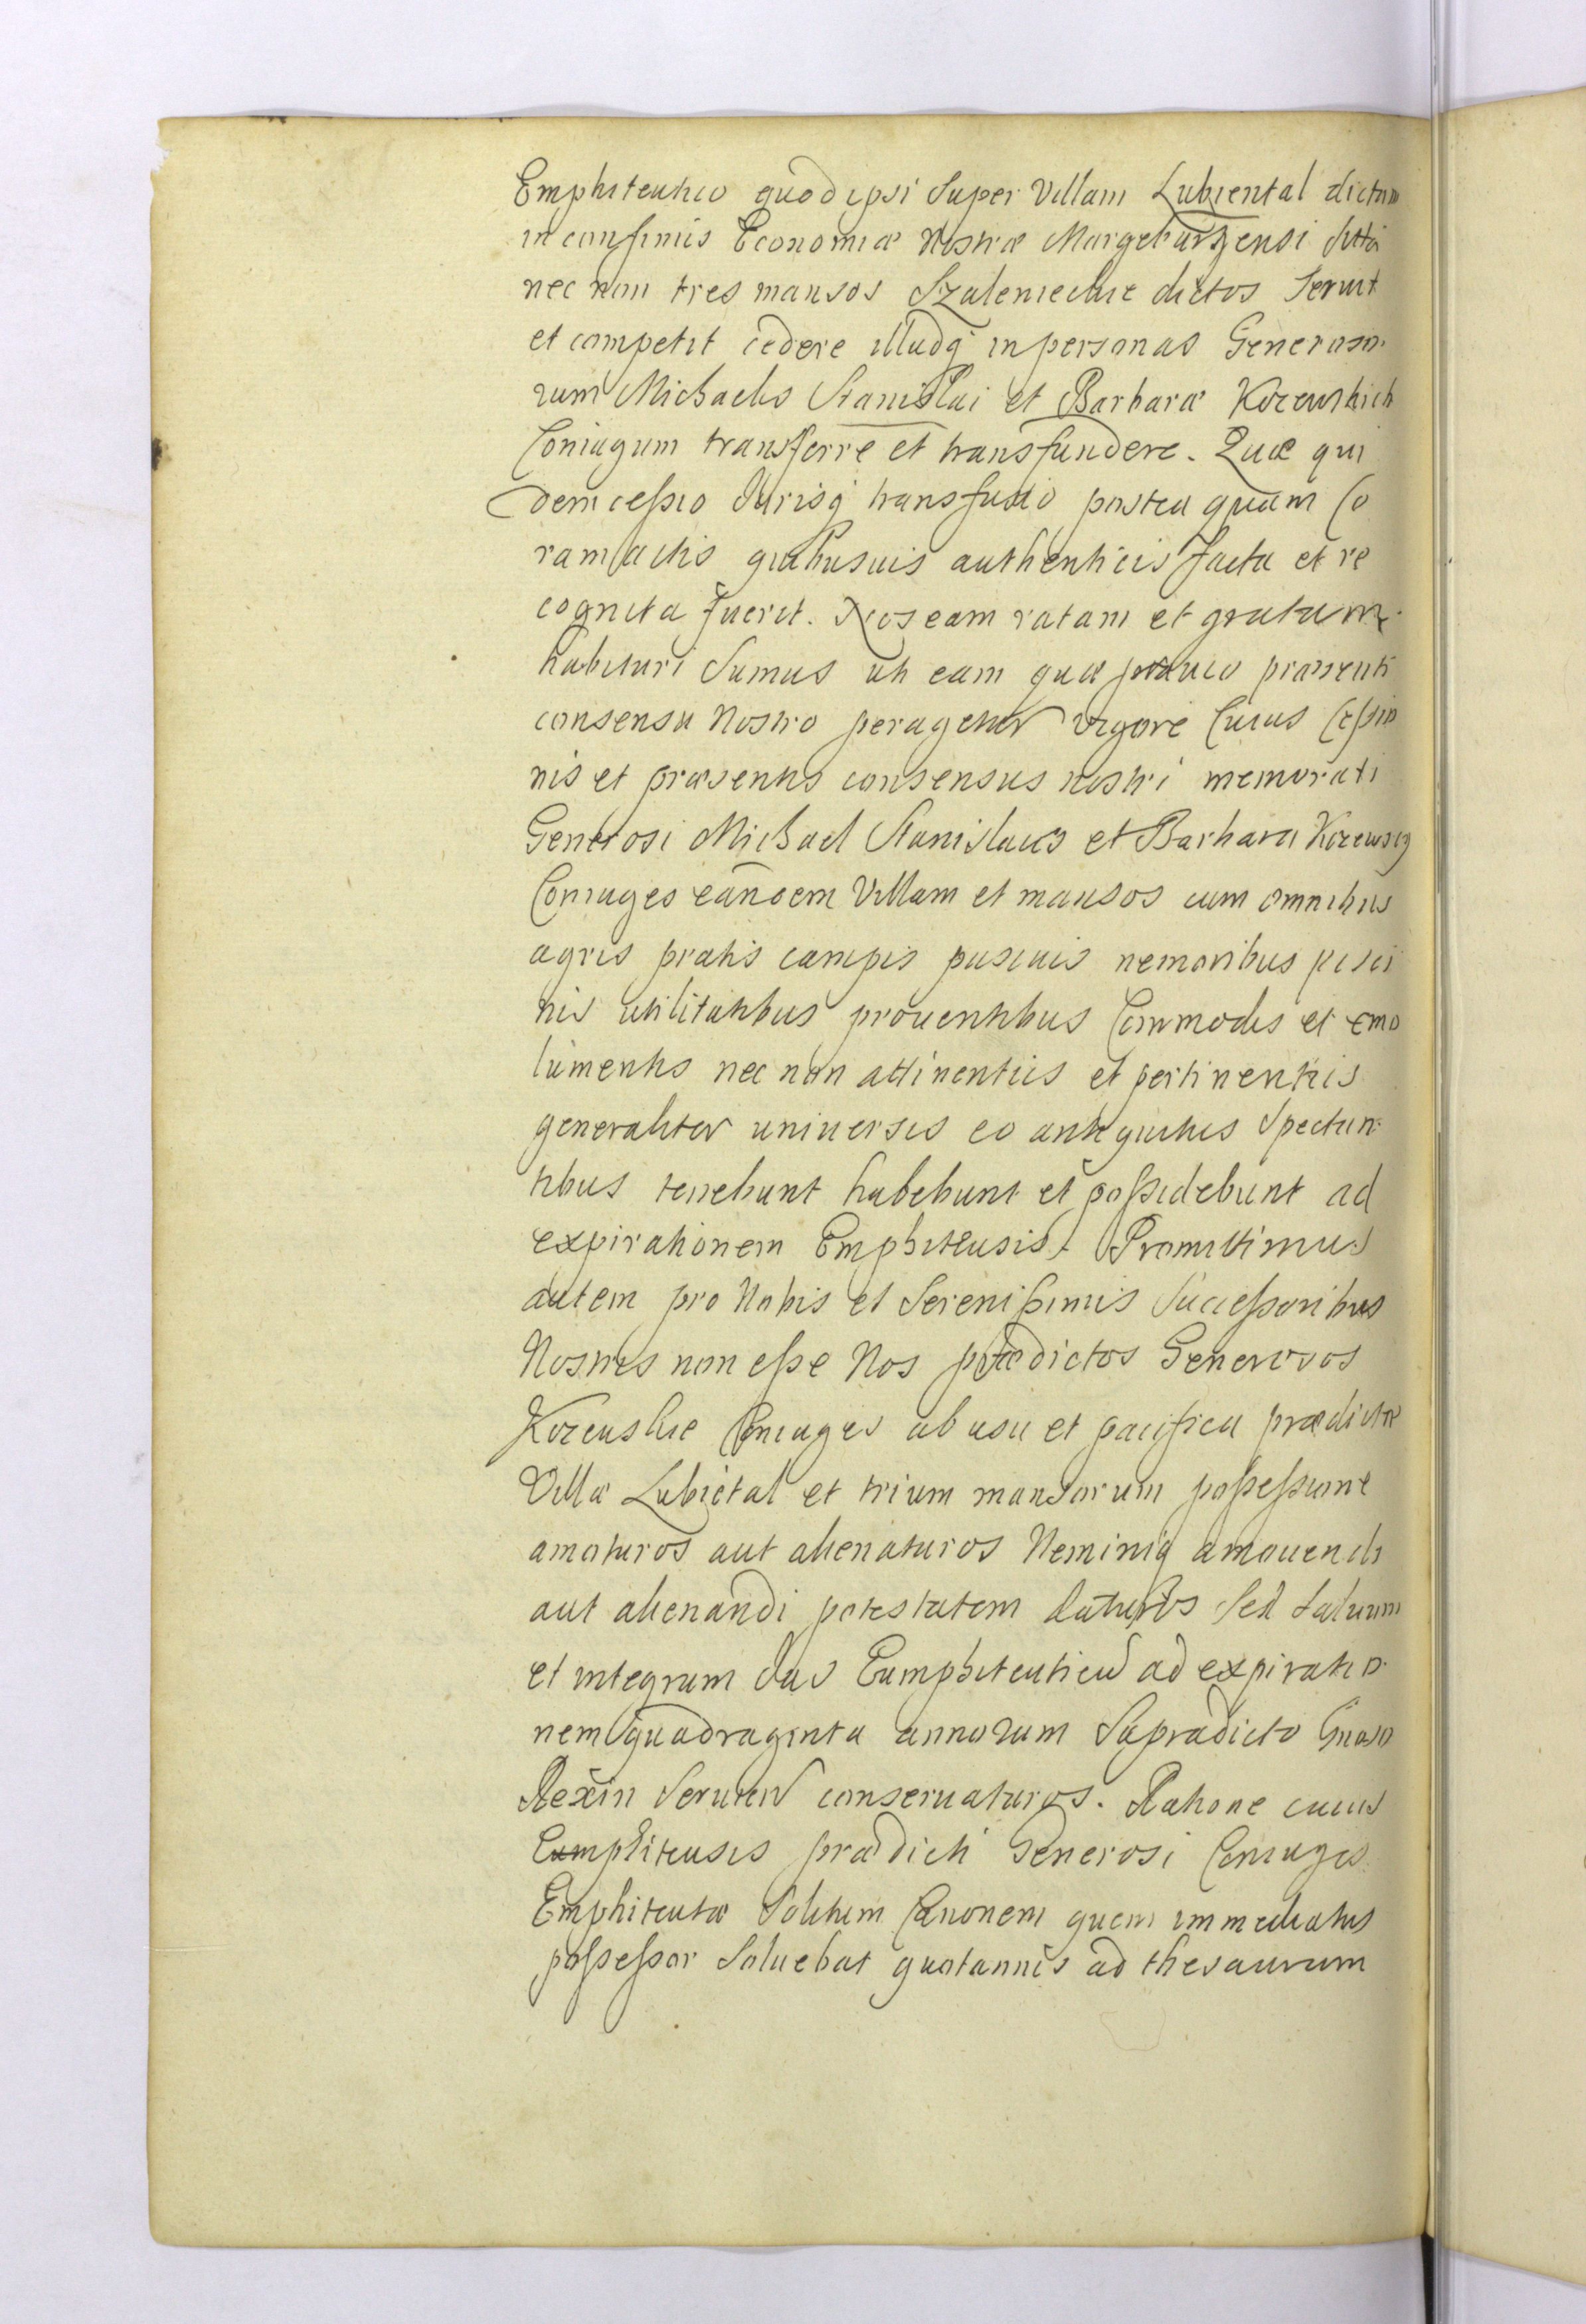 Emphiteutico quod ipsi Super Villam Lubiental dictam
in confiniis Economiæ Nostræ Margeburgensi Sitta
nec non tres mansos Szaleniechie dictos Seruit
et competit cedere illudq in personas Generoso-
rum Michaelis Stanislai et Barbaræ Korewskich
Coniugum transferre et transfundere. Quæ qui
dem cessio Jurisq transfusio postea quam Co
ram actis quibusuis authenticis facta et re
cognita fuerit. Nos eam ratam et gratam
habituri Sumus uti eam quæ præuio præsenti
consensu Nostro peragetur vigore Cuius Cessio
nis et præsentis consensus nostri memorati
Generosi Michael Stanislaus et Barbara Korewscy
Coniuges eandem Villam et mansos cum omnibus
agris pratis campis pascuis nemoribus pisci
nis utilitatibus prouentibus Commodis et emo
lumentis nec non attinentiis et pertinentiis
generaliter uniuersis eo antiquitus Spectan-
tibus tenebunt habebunt et possidebunt ad
expirationem Emphiteusis. Promittimus
autem pro Nobis et Serenissimis Successoribus
Nostris non esse Nos prædictos Generosos
Korewskie Coniuges ab usu et pacifica prædictæ
Villæ Lubictal et trium mansorum possessione
amoturos aut alienaturos Neminiq amouendi
aut alienandi potestatem daturos Sed Saluum
et integrum Jus Eumphiteuticu ad expiratio-
nem quadraginta annorum Supradicto
Rexin Seruien conseruaturos. Ratione cuius
Eumphiteusis prædicti Generosi Coniuges
Emphiteutæ Solitum Canonem quem immediatus
possessor Soluebat quotannis ad thesaurum